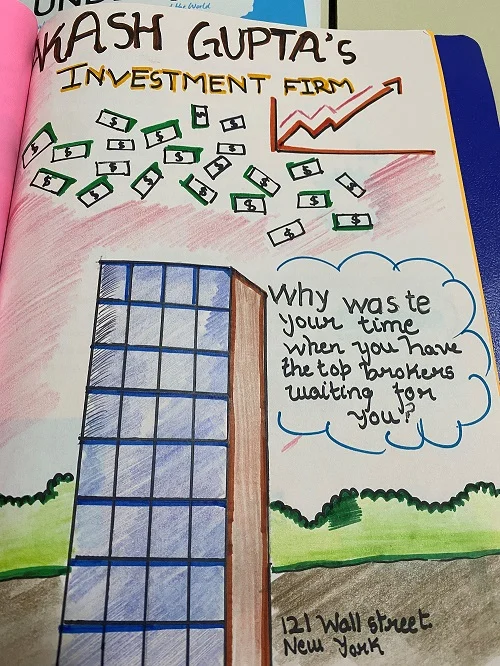 the World
AKASH GUPTA's
INVESTMENT FIRM
$ $ $ $ $ $ $ $ $ $ $ $ $ $ $ $ $ $ $ $
Why waste
your time
when you have
the top brokers
waiting for
you?
121 Wall street
New York